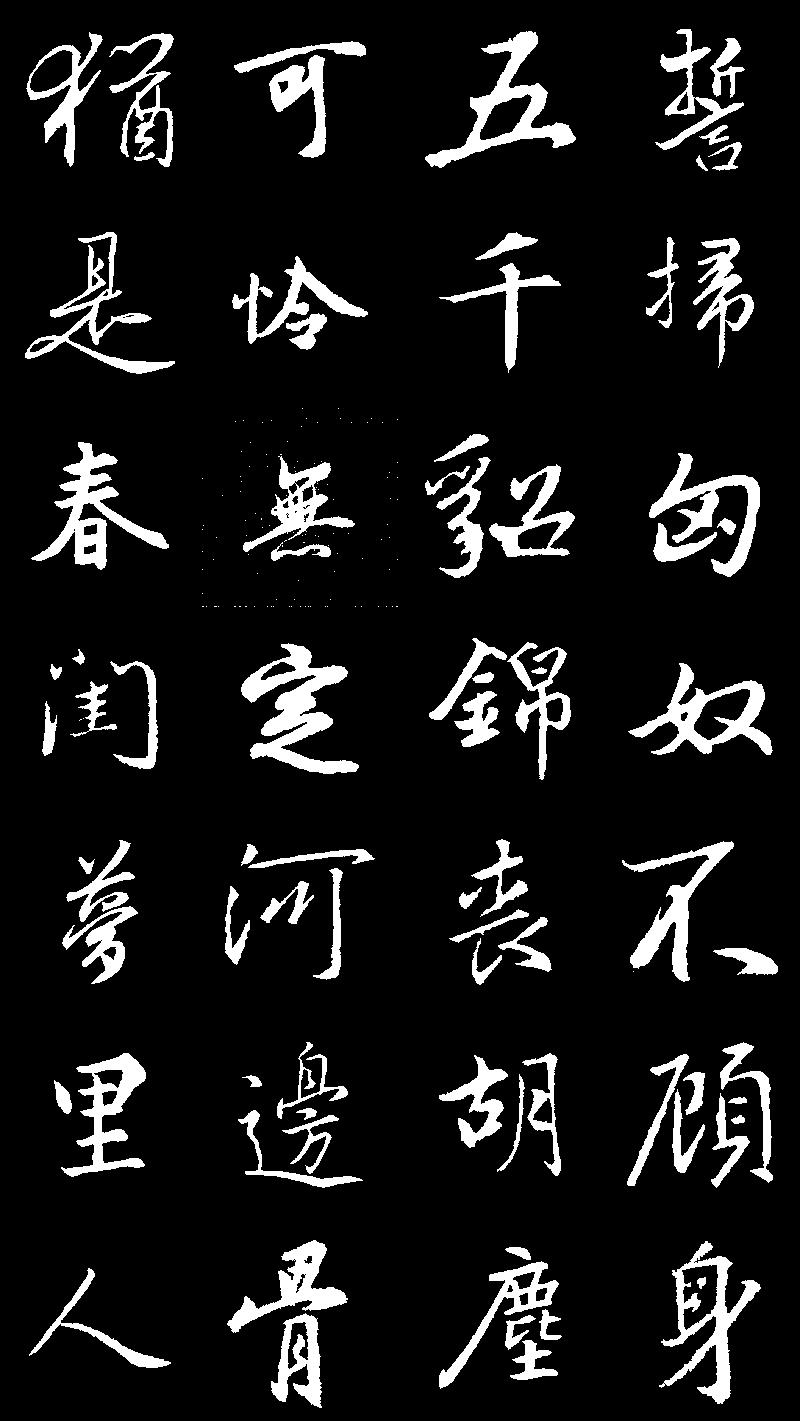 誓掃匈奴不顧身
五千貂錦喪胡塵
可怜無定河邊骨
猶是春闺夢里人